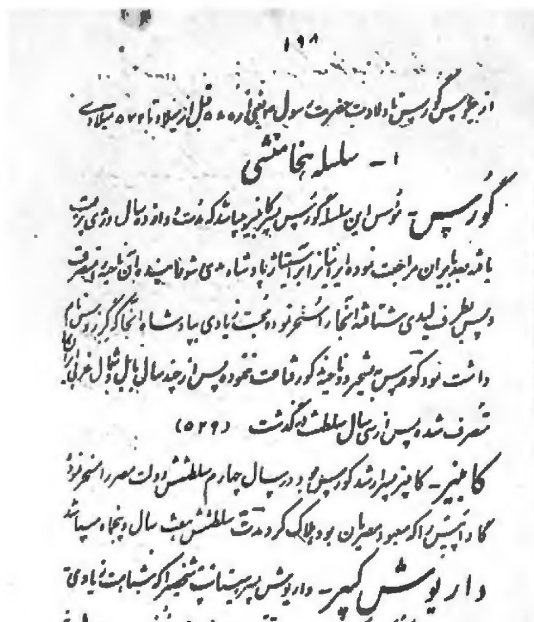 ۱۹۸
از جلوس گورس تا ولادت حضرت رسول یعنی از ۵۸۵ قبل از میلاد تا ۵۷۲ میلادی
۱ – سلسله هخامنشی
گورس – مؤسس این سلسله گورس پسر کامبیز میباشد که مدت دوازده سال در
باشد بعد بایران مراجعت نموده ایرانیانرا بر آستیاژ پادشاه مدی شورانیده آن ناحیه را متصرف
و سپس بطرف لیدی شتافته آنجا را مسخر نمود و محبت زیادی بپادشاه آنجا که کرزوس نام
داشت نمود گورس به قناعت ننموده پس از چند سال بابل و
متصرف شده پس از سی سال سلطنت درگذشت (۵۲۹)
کامبیز – کامبیز پسر ارشد گورس بود در سال چهارم سلطنتش دولت مصر را مسخر نمود
گاو آپیس را که معبود مصریان بود هلاک کرد مدت سلطنتش هشت سال و پنجاه میباشد
داریوش کبیر – داریوش پسر شخصیرا که شباهت زیادی